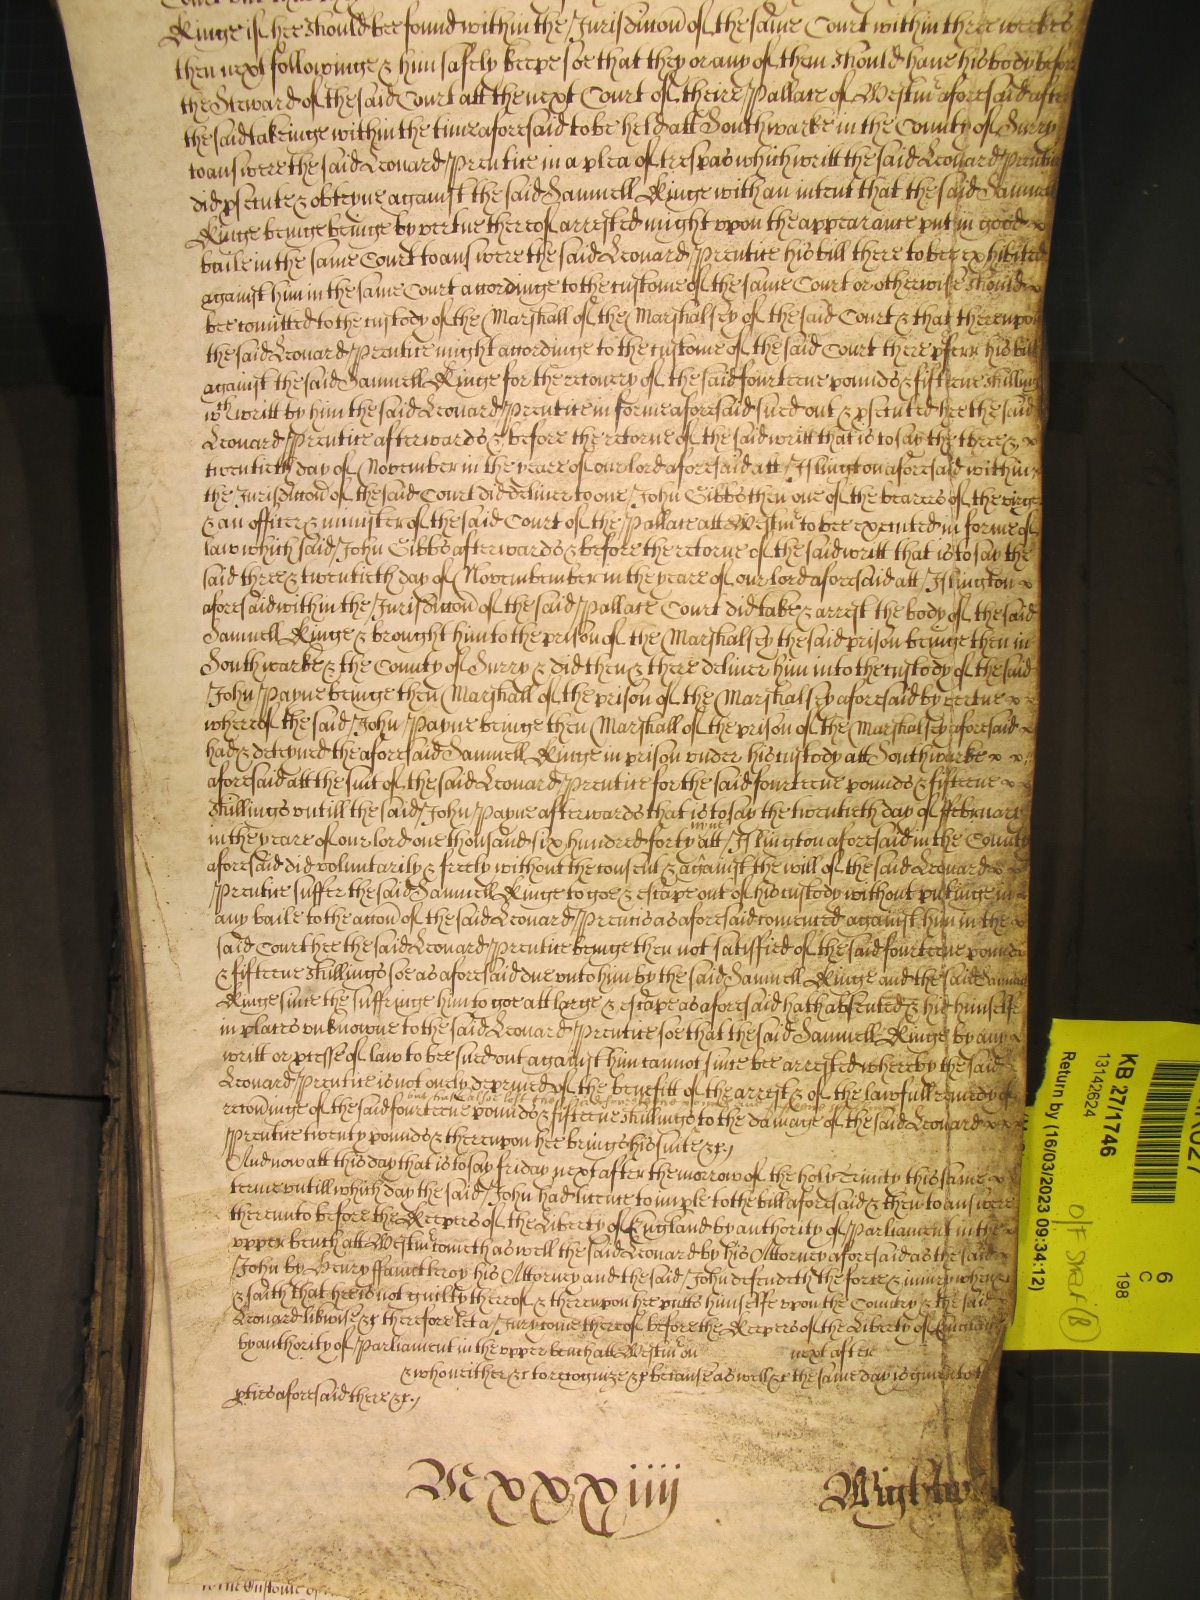 Ringe if hee should bee found within the Jurisdiccon of the same Court within three weekes
then next followinge & him safely keepe soe that they or any of them should have his body before
the Steward of the said Court att the next Court of theire Pallace of Westm aforesaid after
the said takeinge within the time aforesaid to be held att Southwarke in the County of Surry
to answere the said Leonard Prentice in a plea of trespas which writt the said Leonard Prentice
did psecute & obteyne against the said Samuell Ringe with an intent that the said Samuell
Ringe beinge beinge by vertue thereof arrested might vpon the appearance put in good
baile in the same Court to answere the said Leonard Prentice his bill there to bee exhibited
against him in the same Court accordinge to the custome of the same Court or otherwise should
bee comitted to the custody of the Marshall of the Marshalsey of the said Court & that therevpon
the said Leonard Prentice might accordinge to the custome of the said Court there pferr his bill
against the said Samuell Ringe for the recovery of the said fourteene pounds & fifteene shillings
wch writt by him the said Leonard Prentice in forme aforesaid sued out & psecuted hee the said
Leonard Prentice afterwards & before the retorne of the said writt that is to say the three &
twentieth day of November in the yeare of our lord aforesaid att Islington aforesaid within
the Jurisdiccon of the said Court did deliver to one John Gibbs then one of the bearers of the virge
& an officer & minister of the said Court of the Pallace att Westm to bee executed in forme of
law which said John Gibbs afterwards & before the retorne of the said writt that is to say the
said three & twentieth day of Novembember in the yeare of our lord aforesaid att Islington
aforesaid within the Jurisdiccon of the said Pallace Court did take & arrest the body of the said
Samuell Ringe & brought him to the prison of the Marshalsey the said prison beinge then in
Southwarke & the County of Surry & did then & there deliver him into the custody of the said
John Payne beinge then Marshall of the prison of the Marshalsey aforesaid by vertue
whereof the said John Payne beinge then Marshall of the prison of the Marshalsey aforesaid
had & deteyned the aforesaid Samuell Ringe in prison vnder his custody att Southwarke
aforesaid att the suit of the said Leonard Prentice for the said fourteene pounds & fifteene
shillings vntill the said John Payne afterwards that is to say the twentieth day of February
in the yeare of our lord one thousand six hundred forty nyne att Islington aforesaid in the County
aforesaid did voluntarily & freely without the consent & against the will of the said Leonard
Prentice suffer the said Samuell Ringe to goe & escape out of his custody without putinge in
any baile to the accon of the said Leonard Prentis as aforesaid comenced against him in the
said Court hee the said Leonard Prentice beinge then not satisfied of the said fourteene pounds
& fifteene shillings soe as aforesaid due vnto him by the said Samuell Ringe and the said Samuell
Ringe since the suffringe him to goe att large & escape as aforesaid hath absented & hid himselfe
in places vnknowne to the said Leonard Prentice soe that the said Samuell Ringe by any
writt or pcesse of law to bee sued out against him cannot since bee arrested whereby the said
Leonard Prentice is not onely deprived of the benefitt of the arrest & of the lawfull remedy of
but hath alsoe lost
recovinge of the said fourteene pounds & fifteene shillings to the damage of the said Leonard
Prentice twenty pounds & therevpon hee brings his suite &c
And now att this day that is to say friday next after the morrow of the holy Trinity this same
terme vntill which day the said John had licence to imple to the bill aforesaid & then to answere
therevnto before the Keepers of the Liberty of England by authority of Parliament in the
vpper bench att Westm cometh as well the said Leonard by his Attorney aforesaid as the said
John by Henry ffanntleroy his Attorney and the said John defendeth the force & iniury when &c
& saith that hee is not guilty thereof & therevpon hee putts himselfe vpon the Country & the said
Leonard likwise &c therefore let a Jury come thereof before the Keepers of the Liberty of England
by authority of Parliament in the vpper bench att Westm on next after
& who neither &c to recognize &c because as well &c the same day is given to the
pties aforesaid there &c
M xxxiiii Wightw
KB 27/1746
13142624
Return by (16/03/2023 09:34:12)
6
C
198